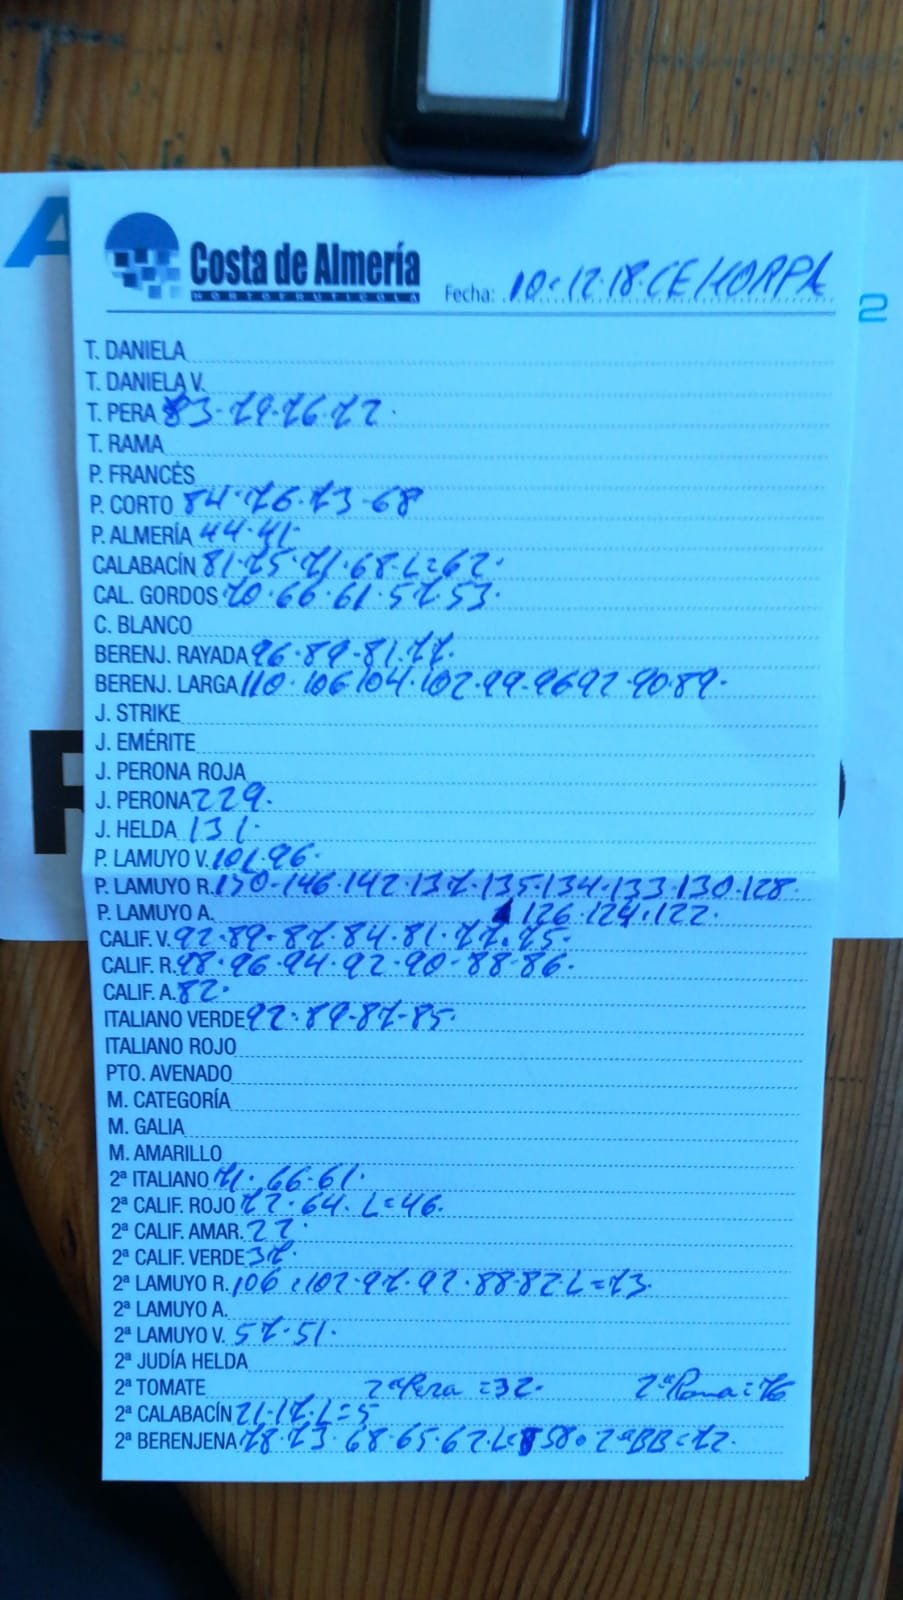 Costa de Almería
HORTOFRUTICOLA
Fecha: 10-12-18. CEHORPA
T. DANIELA
T. DANIELA V.
T. PERA 83-79-76-72.
T. RAMA
P. FRANCÉS
P. CORTO 84-76-73-68
P. ALMERÍA 44-41.
CALABACÍN 81-75-71-68-L=62.
CAL. GORDOS 70-66-61-57-53.
C. BLANCO
BERENJ. RAYADA 96-89-81-77.
BERENJ. LARGA 110-106 104-102-99-96 92-90-89-
J. STRIKE
J. EMÉRITE
J. PERONA ROJA
J. PERONA 229.
J. HELDA 131.
P. LAMUYO V. 101-96.
P. LAMUYO R. 150-146-142-137-135-134-133-130-128
P. LAMUYO A. 126-124-122.
CALIF. V. 92-89-87-84-81-77-75-
CALIF. R. 98-96-94-92-90-88-86.
CALIF. A. 82.
ITALIANO VERDE 92-89-87-85.
ITALIANO ROJO
PTO. AVENADO
M. CATEGORÍA
M. GALIA
M. AMARILLO
2ª ITALIANO 71-66-61.
2ª CALIF. ROJO 72-64. L=46.
2ª CALIF. AMAR. 22.
2ª CALIF. VERDE 37.
2ª LAMUYO R. 106-102-97-92-88-82-L=73.
2ª LAMUYO A.
2ª LAMUYO V. 57-51.
2ª JUDÍA HELDA
2ª TOMATE 2ªPera=32. 2ªRama=16
2ª CALABACÍN 21-17-L=5
2ª BERENJENA 78-73-68-65-62-L=58. 2ªBB=72.